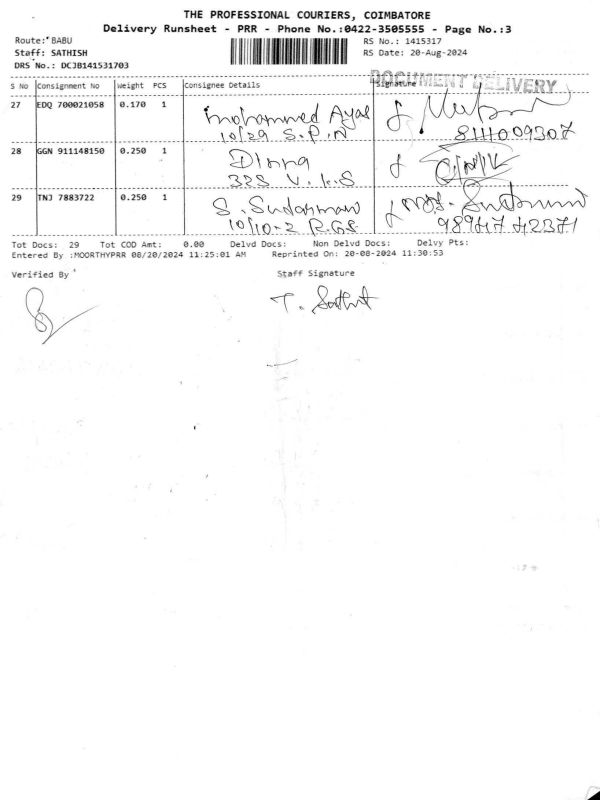 THE PROFESSIONAL COURIERS, COIMBATORE
Delivery Runsheet - PRR - Phone No.:0422-3505555 - Page No.:3
Route: BABU RS No.: 1415317
Staff: SATHISH RS Date: 20-Aug-2024
DRS No.: DCJB141531703
DOCUMENT DELIVERY
S No Consignment No Weight PCS Consignee Details Signature
27 EDQ 700021058 0.170 1 Mohammed Ayas
10/29 S.P.N 8111009307
28 GGN 911148150 0.250 1
328 V.K.S
29 TNJ 7883722 0.250 1 S.
10/10-2 R.G.S 98947 42371
Tot Docs: 29 Tot COD Amt: 0.00 Delvd Docs: Non Delvd Docs: Delvy Pts:
Entered By :MOORTHYPRR 08/20/2024 11:25:01 AM Reprinted On: 20-08-2024 11:30:53
Verified By Staff Signature
T.